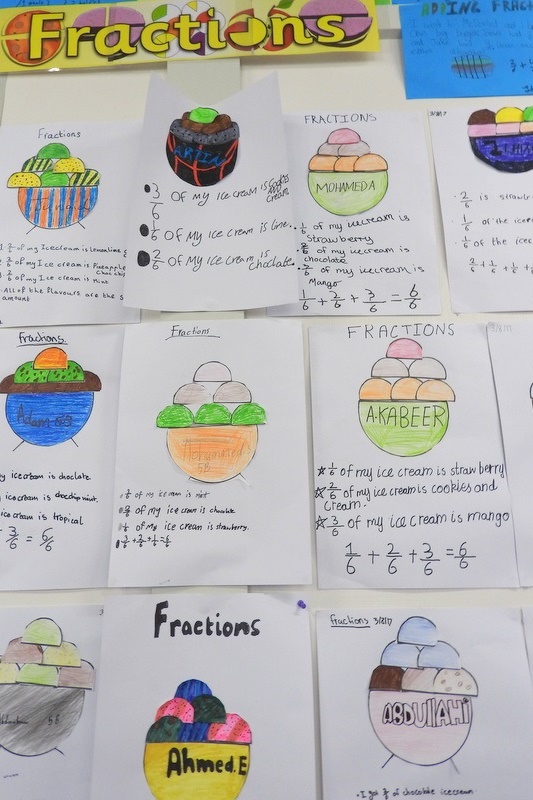 Fractions
ADDING FRACT
Fractions
of my Icecream is
of my Ice cream is
3/6 of my Ice cream is Mint
All of the flavours are the s
amount
3/6 OF MY ICE CREAM IS Cookies
AND
Cream
1/6 OF MY ICE CREAM IS lime.
2/6 OF MY ICE CREAM IS
Choclate.
FRACTIONS
MOHAMED A
1/6 of my icecream is
Strawberry
2/6 of my icecream is
chocolate
3/6 of my icecream is
Mango
1/6 + 2/6 + 3/6 = 6/6
2/6 is strawb
1/6 of the icec
1/6 of the icec
2/6 + 1/6 + 1/6 +
Fractions
Adam 5B
y icecream is choclate.
icecream is chocchip mint.
ice cream is tropical
3/6 = 6/6
Fractions
Mohammed.
5B
of my ice cream is mint
of my ice cream is chocolate
of my ice cream is strawberry.
FRACTIONS
A·KABEER
1/6 of my ice cream is strawberry
2/6 of my ice cream is cookies and
Cream.
3/6 of my ice cream is mango
1/6 + 2/6 + 3/6 = 6/6
5B
Fractions
Ahmed.E
fractions 3/2/17
ABDUllAHi
I got of chocolate icecream.